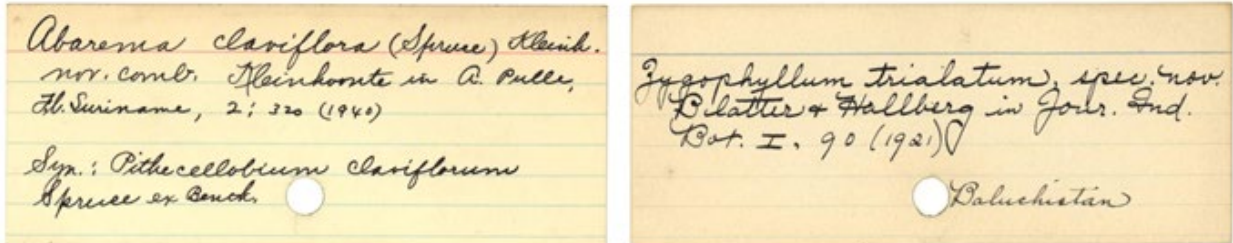 Abarema claviflora (Spruce) Kleinh.
nov. comb. Kleinhoonte in A. Pulle,
Fl. Suriname, 2: 320 (1940)
Syn.: Pithecellobium claviflorum
Spruce ex Benth.
Zygophyllum trialatum, spec. nov.
Blatter & Hallberg in Jour. Ind.
Bot. I. 90 (1921)
Baluchistan